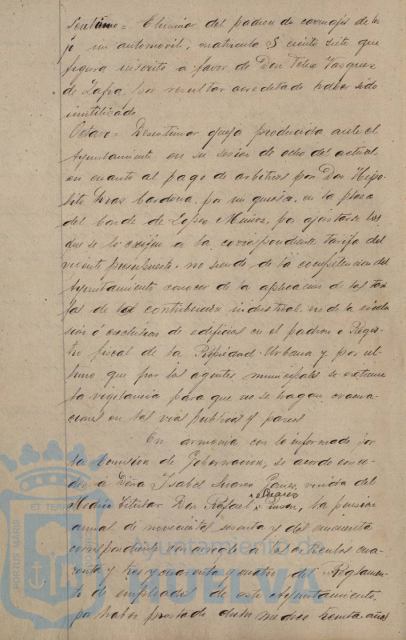 Septimo = Eliminar del padron de carruajes de lu-
jo un automovil, matricula S ciento siete que
figura inscrito a favor de Don Felix Vazquez
de Zafra, por resultar acreditado haber sido
inutilizado
Octavo = Desestimar queja producida ante el
Ayuntamiento en su sesion de ocho del actual
en cuanto al pago de arbitrios por Don Hipo-
lito Rivas Cardona, por un quiosco, en la plaza
del barde de Lopez Muñoz, por ajustarse los
que se le exigen a la correspondiente tarifa del
vigente presupuesto, no siendo de la competencia del
Ayuntamiento conocer de la aplicacion de las tari-
fas de la contribucion industrial ni de la inclu-
sion ó exclusion de edificios en el padron o Regis-
tro fiscal de la Propiedad Urbana y por ul-
timo que por los agentes municipales se extreme
la vigilancia para que no se hagan evacua-
ciones en las vias publicas y paseos
En armonia con lo informado por
la Comision de Gobernacion, se acordo conce-
der a Doña Isabel Suarez viuda del
Medico Titular Don Rafael la pension
anual de novecientas sesenta y dos cincuenta
correspondiente con arreglo a los articulos cua-
renta y tres y cuarenta y cuatro del Reglamen-
to de empleados de este Ayuntamiento,
por haber prestado dicho medico treinta años
PORTUS MARIS ET TERRAE
Ayuntamiento de
HUELVA